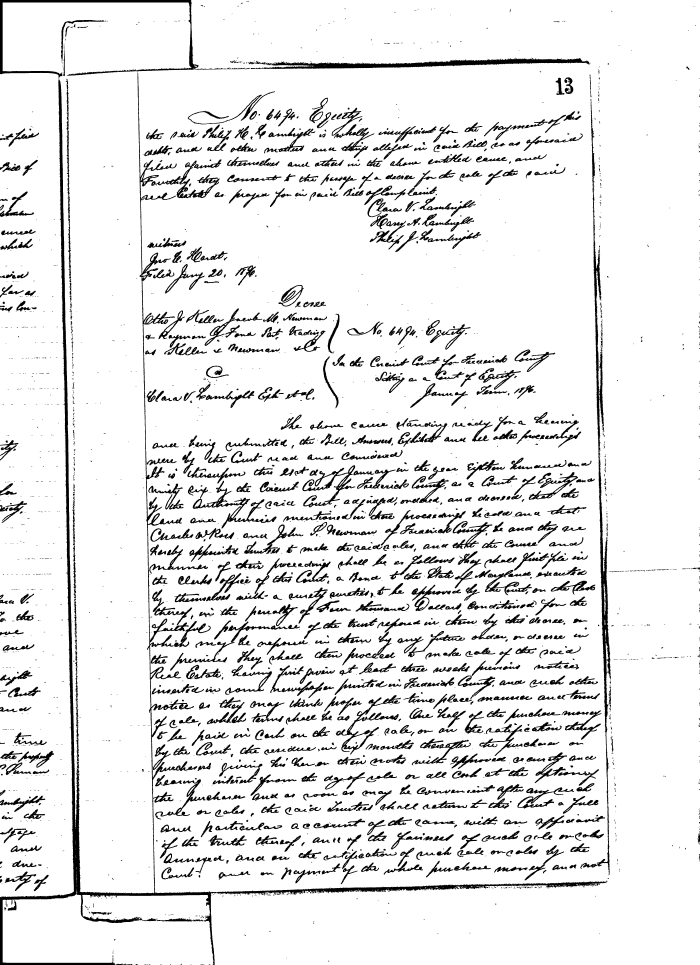 13
No. 6494. Equity.
the said Philip H. Lambright is wholly insufficient for the payment of his
debts, and all other matters and things alleged in said Bill, so as aforesaid
filed against themselves and others in the above entitled cause, and
Fourthly, they consent to the passage of a decree for the sale of the said
real Estate as prayed for in said Bill of Complaint.
Clara V. Lambright
Harry A. Lambright
Philip J. Lambright
witness
Jno
Filed Jany 20, 1896.
Decree
Otho J. Keller Jacob M. Newman
& Rayman Ford Part. trading
as Keller & Newman & Co
No. 6494. Equity.
In the Circuit Court for Frederick County
Sitting as a Court of Equity.
January Term, 1896.
Clara V. Lambright Exh et al.
The above cause standing ready for a hearing
and being submitted, the Bill, Answers, Exhibits and all other proceedings
were by the Court read and considered
It is thereupon this 21st day of January in the year Eighteen hundred and
ninety six by the Circuit Court for Frederick County, as a Court of Equity, and
by the Authority of said Court, adjudged, ordered, and decreed, that the
land and premises mentioned in these proceedings be sold and that
Charles W. Ross and John S. Newman of Frederick County, be and they are
hereby appointed Trustees to make the said sales, and that the Course and
manner of their proceedings shall be as follows They shall first file in
the Clerks office of this Court, a Bond to the State of Maryland, executed
by themselves with a surety sureties, to be approved by the Court, or the Clerk
thereof, in the penalty of Four thousand Dollars, conditioned for the
faithful performance of the trust reposed in them by this decree, or
which may be reposed in them by any future order, or decree in
the premises They shall then proceed to make sale of the said
Real Estate, having first given at least three weeks previous notice
inserted in some newspaper printed in Frederick County, and such other
notice as they may think proper of the time place, manner and terms
of sale, which terms shall be as follows, One half of the purchase money
to be paid in Cash on the day of sale, or on the ratification thereof
by the Court, the residue in six months thereafter the purchaser or
purchasers giving his her or their notes with approved security and
bearing interest from the day of sale or all Cash at the option of
the purchaser and as soon as may be convenient after any such
sale or sales, the said Trustees shall return to this Court a full
and particular account of the same, with an affidavit
of the truth thereof, and of the fairness of such sale or sales
annexed, and on the ratification of such sale or sales by the
Court and on payment of the whole purchase money, and not